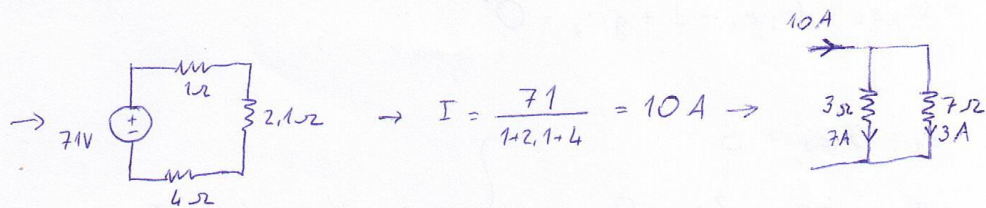 10A
→ 71V + - 1Ω 2,1Ω 4Ω → I = 71 / 1+2,1+4 = 10 A → 3Ω 7A 7Ω 3A